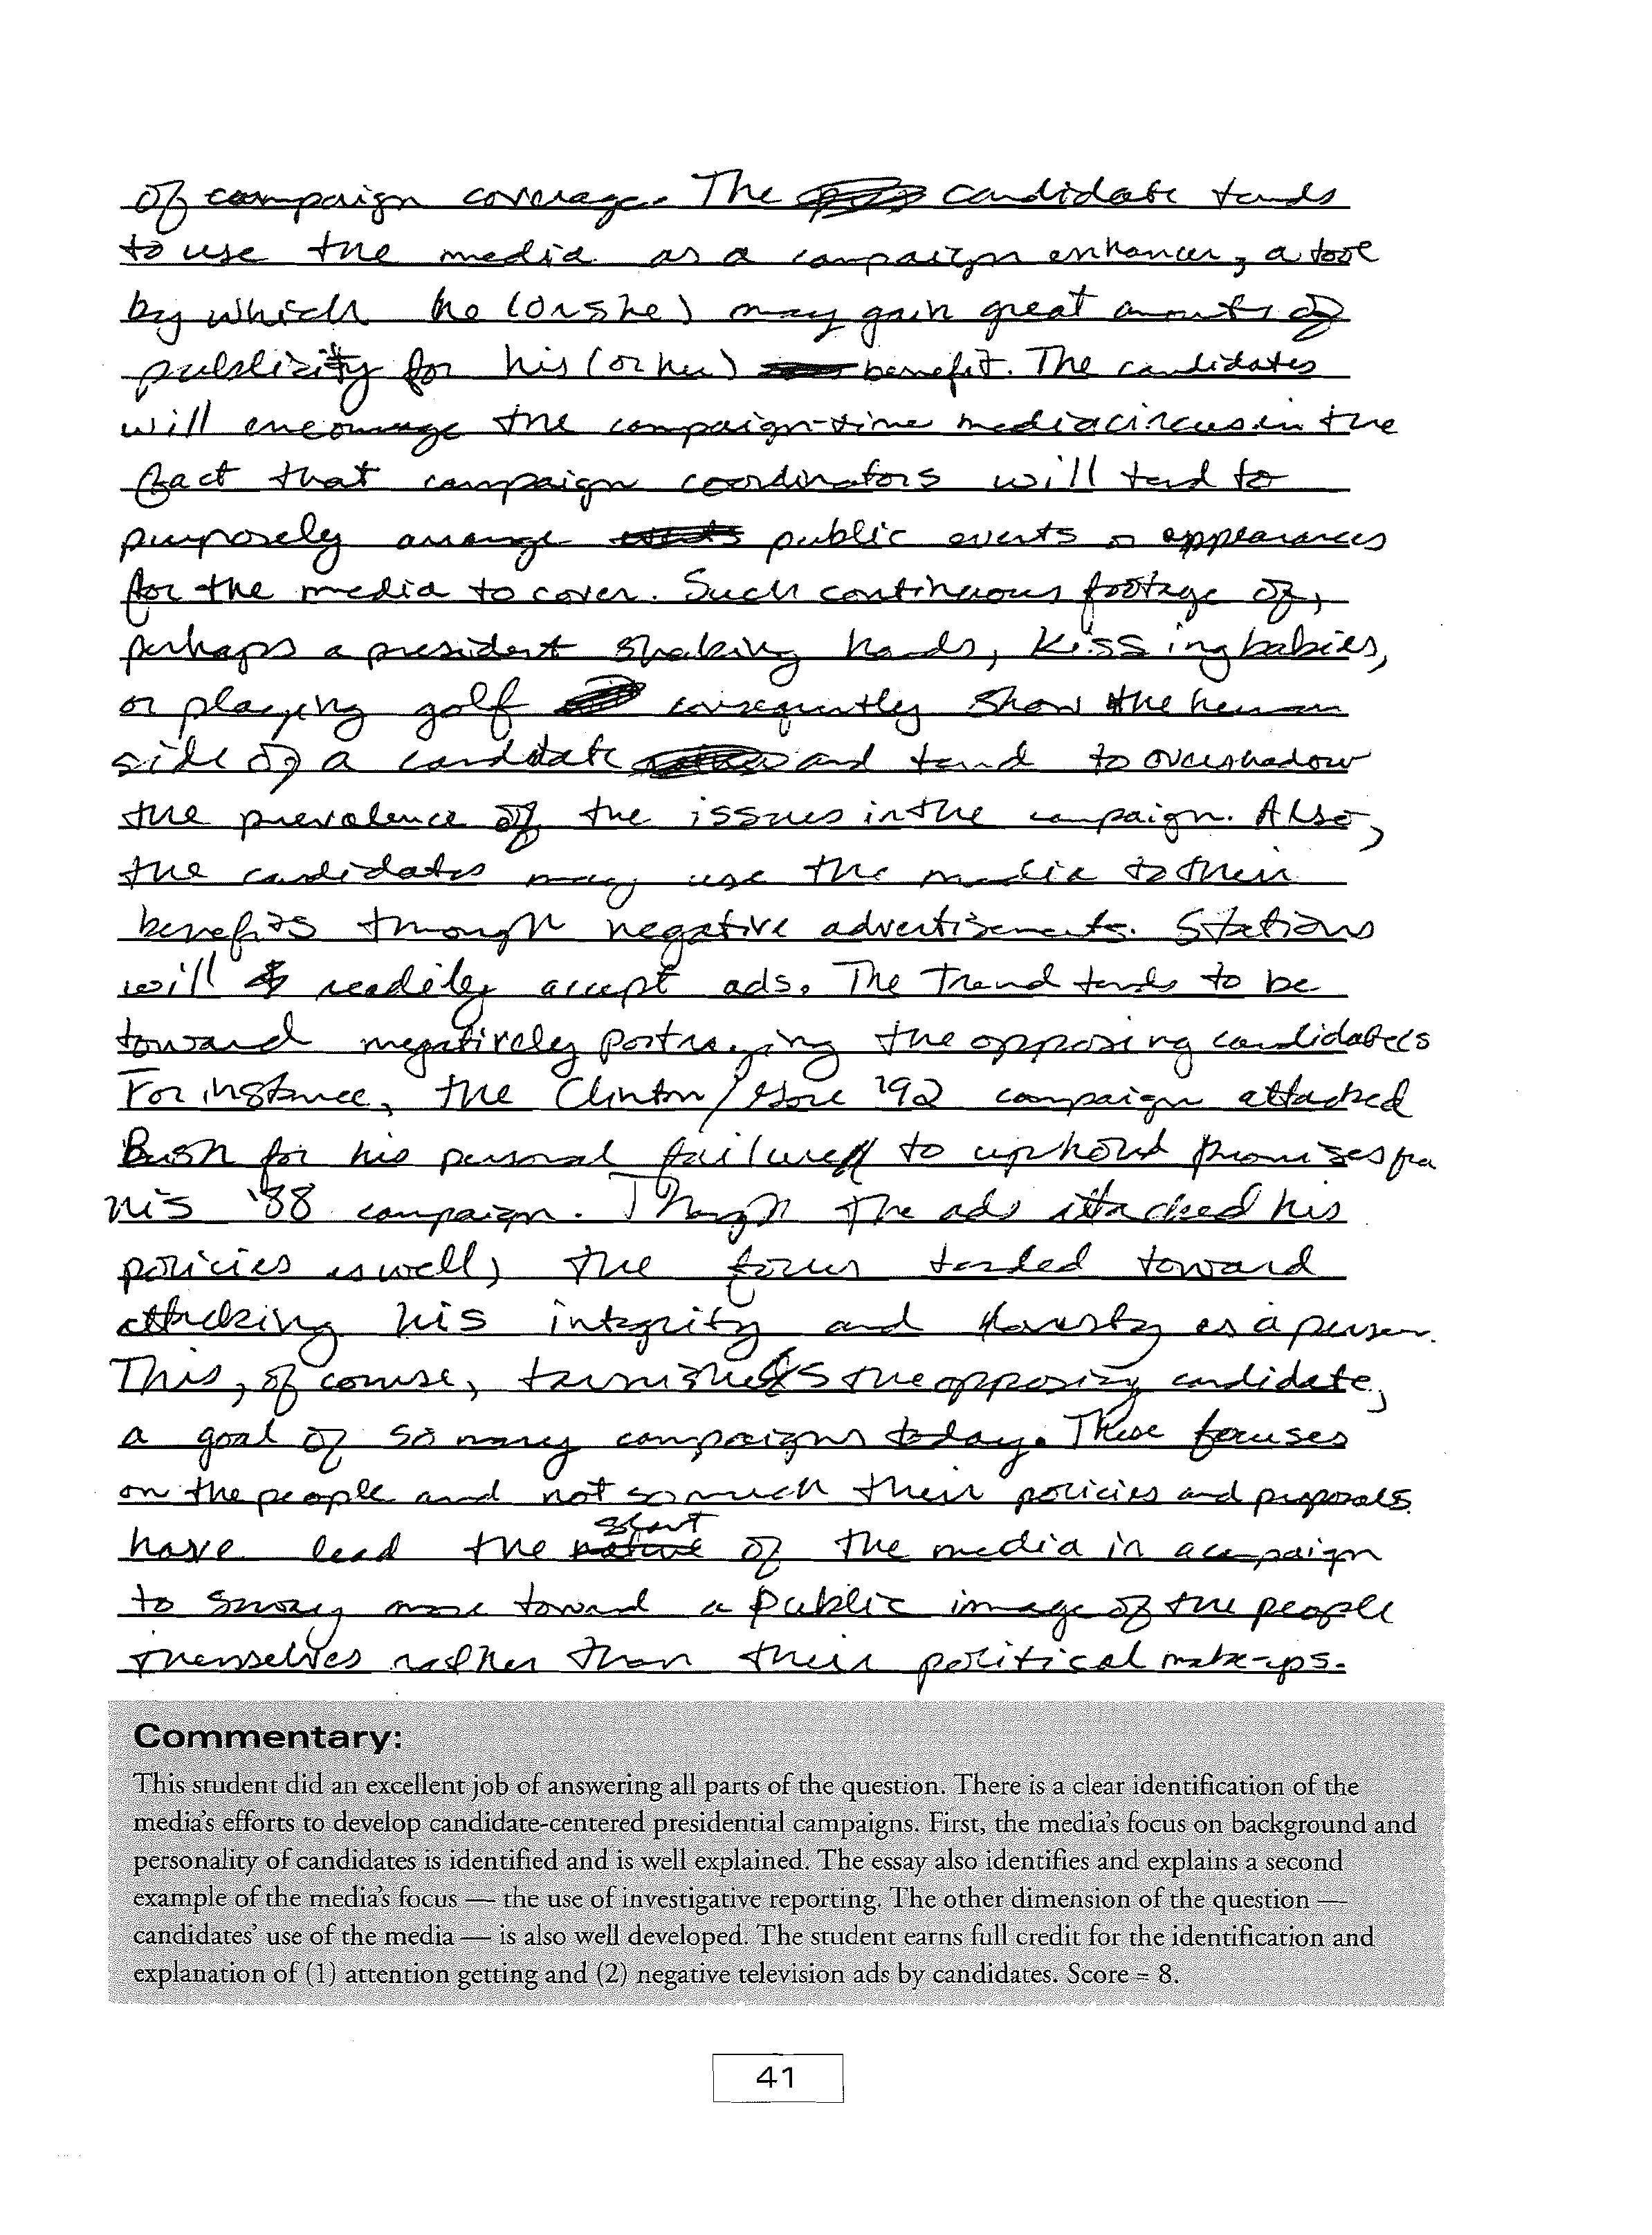 of campaign coverage. The candidate tends
to use the media as a campaign enhancer, a tool
by which he (or she) may gain great amounts of
publicity for his (or her) benefit. The candidates
will encourage the campaign-time media circus in the
fact that campaign coordinators will tend to
purposely arrange events public events or appearances
for the media to cover. Such continuous footage of,
perhaps a president shaking hands, kissing babies,
or playing golf consequently show the human
side of a candidate and tend to overshadow
the prevalence of the issues in the campaign. Also,
the candidates may use the media to their
benefits through negative advertisements. Stations
will readily accept ads. The trend tends to be
toward negatively portraying the opposing candidates
For instance, the Clinton/Gore '92 campaign attacked
Bush for his personal failure to uphold promises
his '88 campaign. Though the ads attacked his
policies as well, the focus tended toward
attacking his integrity and honesty as a person.
This, of course, tarnishes the opposing candidate,
a goal of so many campaigns today. These focuses
on the people and not so much their policies and proposals
have lead the nature slant of the media in a campaign
to sway more toward a public image of the people
themselves rather than their political make-ups.
Commentary:
This student did an excellent job of answering all parts of the question. There is a clear identification of the
media's efforts to develop candidate-centered presidential campaigns. First, the media's focus on background and
personality of candidates is identified and is well explained. The essay also identifies and explains a second
example of the media's focus — the use of investigative reporting. The other dimension of the question —
candidates' use of the media — is also well developed. The student earns full credit for the identification and
explanation of (1) attention getting and (2) negative television ads by candidates. Score = 8.
41